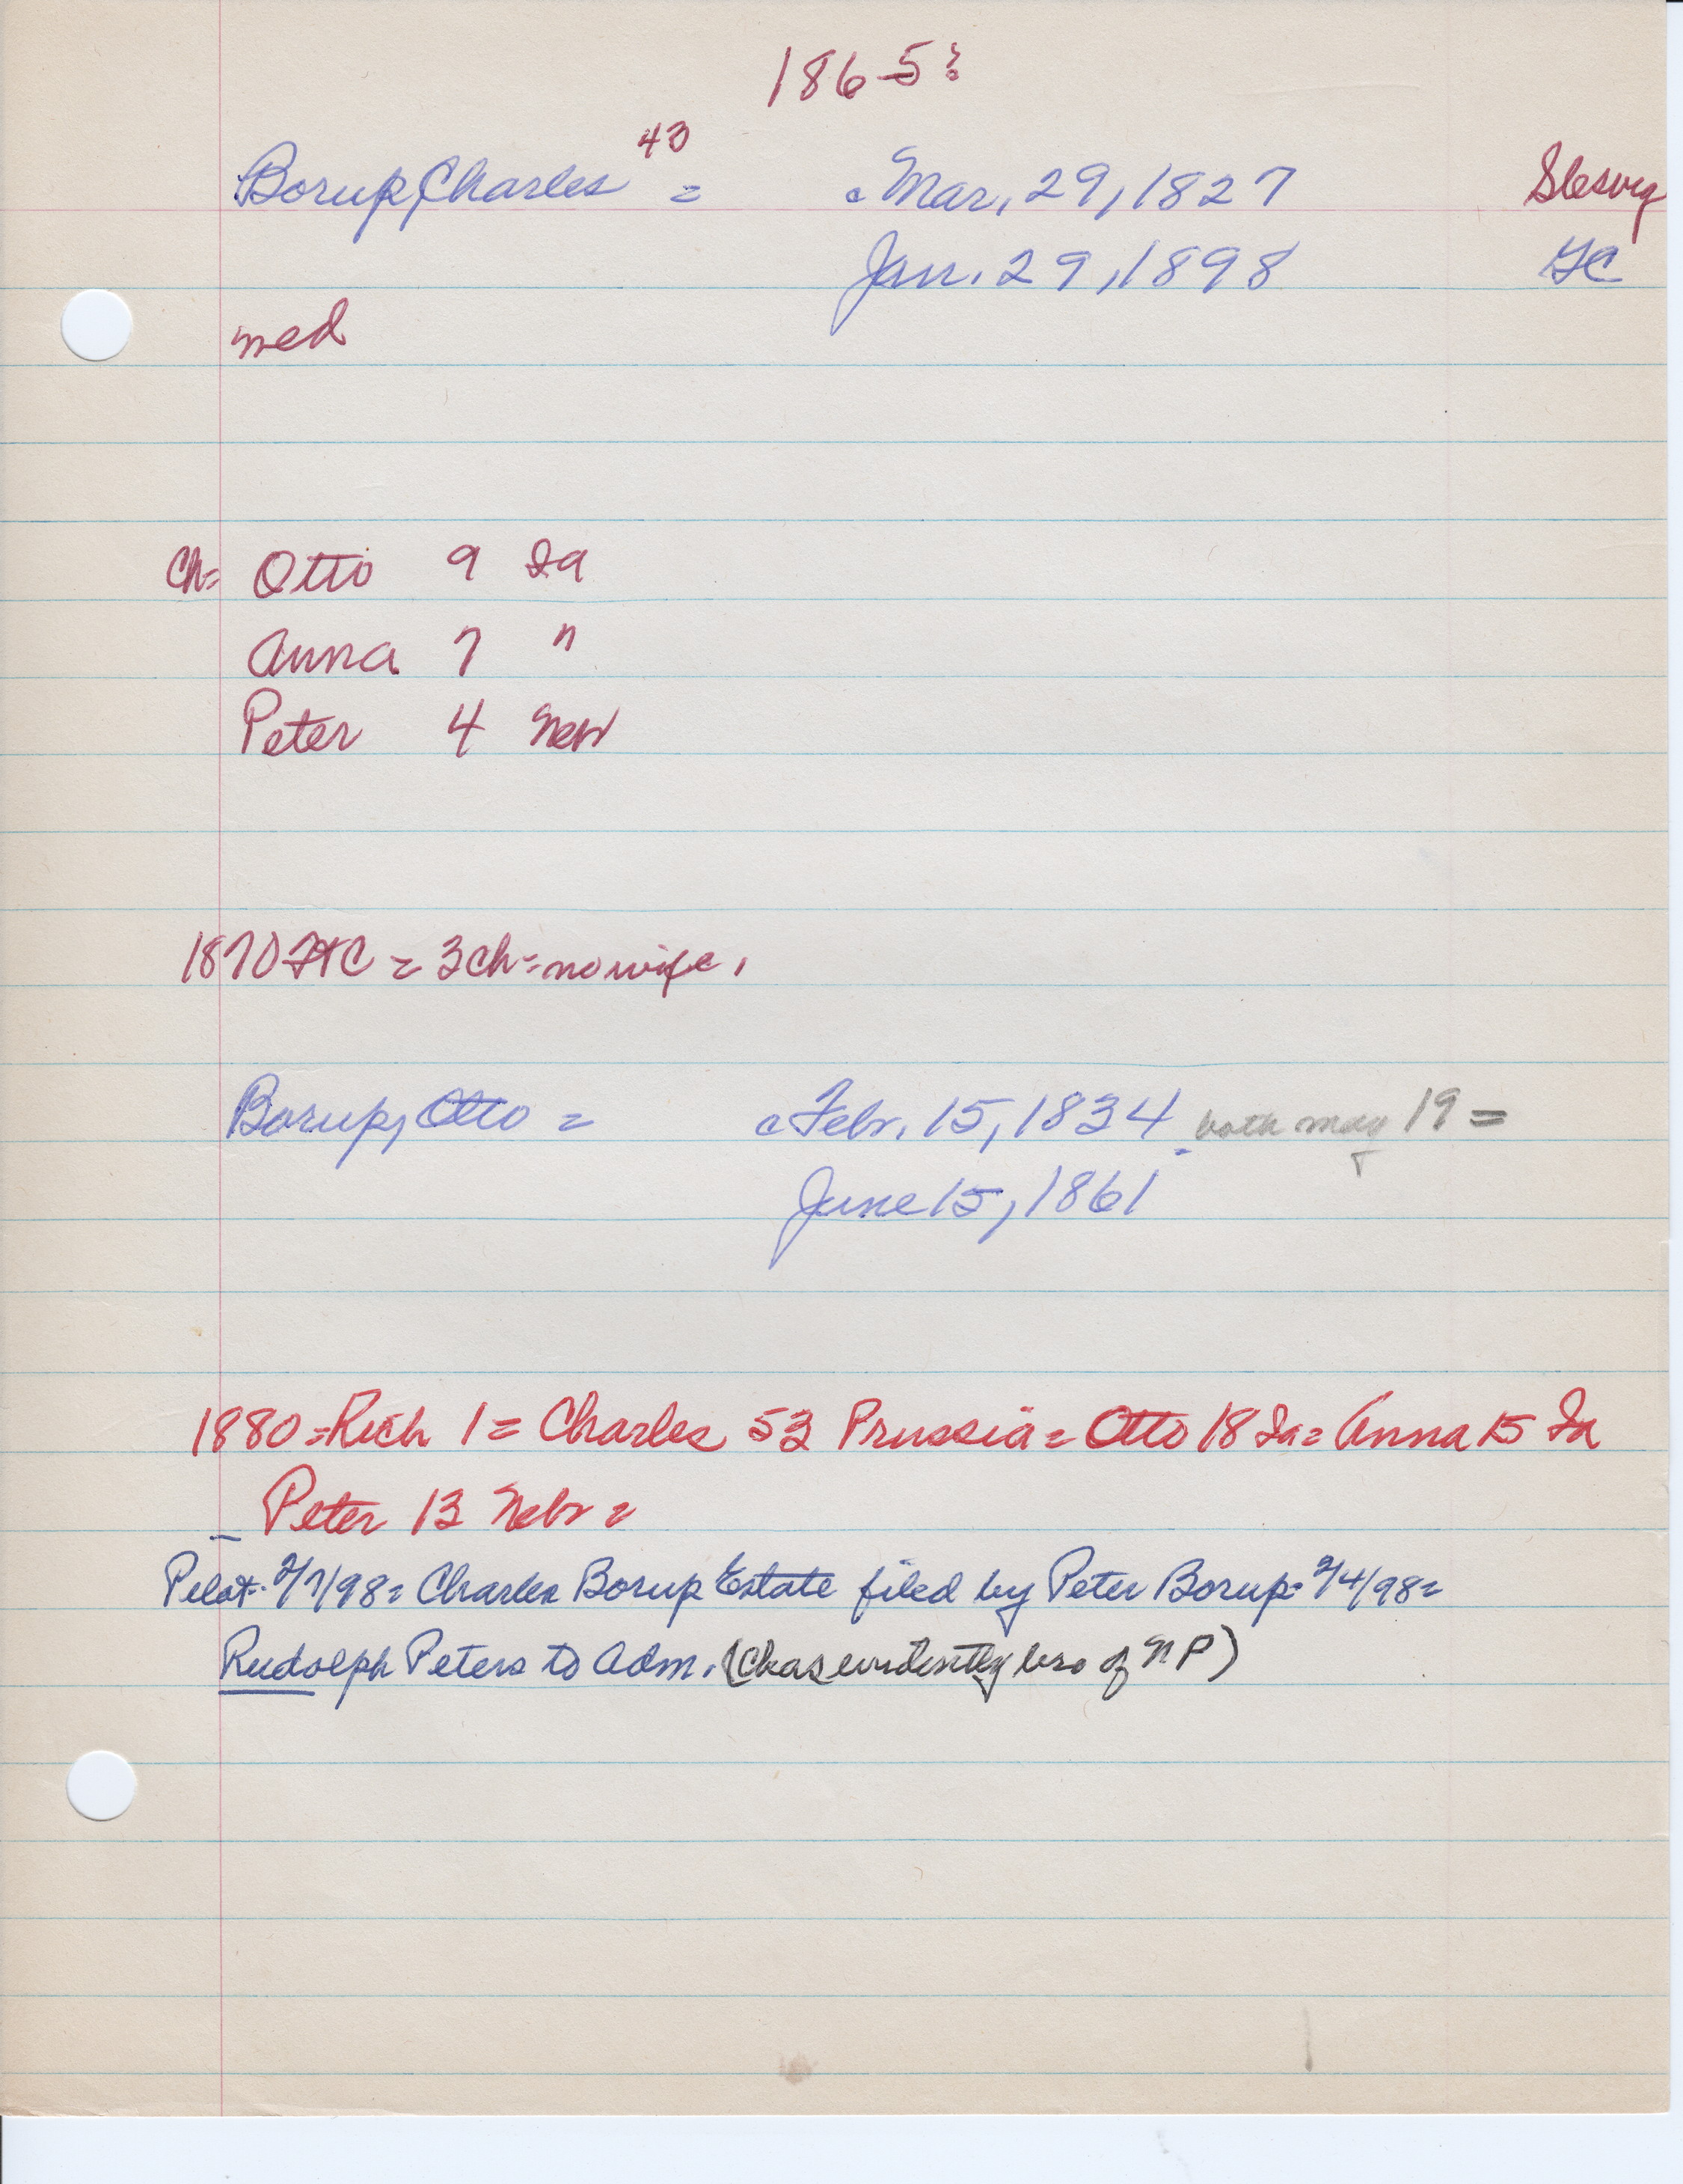 1865?
43
Borup, Charles = c Mar. 29, 1827 Slesvig
Jan. 29, 1898 GC
med
Ch= Otto 9 Ia
Anna 7 "
Peter 4 Neb
1870 = 3 ch - no wife.
Borup, Otto = c Febr. 15, 1834 both may 19 =
June 15, 1861
1880 = Rich 1 = Charles 53 Prussia = Otto 18 Ia = Anna 15 Ia
Peter 13 Nebr =
Pilot 2/7/98 = Charles Borup Estate filed by Peter Borup = 2/4/98 =
Rudolph Peters to Adm. (Chas evidently bro of N P)